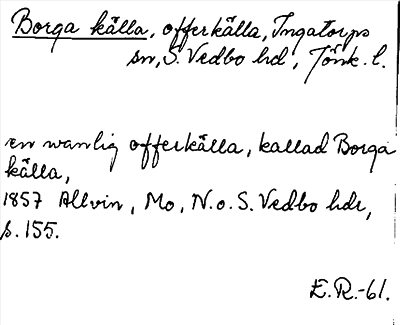 Borga källa, offerkälla, Ingatorps
sn, S. Vedbo hd, Jönk. l.
en wanlig offerkälla, kallad Borga
källa,
1857 Allvin, Mo, N. o. S. Vedbo hdr,
s. 155.
E.R.-61.